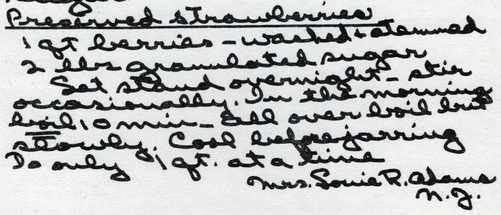 Preserved Strawberries
1 qt berries - washed & stemmed
2 lbs granulated sugar
Let stand overnight - stir
occasionally. In the morning
boil 10 min - Full over boil but
slowly. Cool before jarring
Do only 1 qt. at a time
Mrs. R. Adams
N.J.